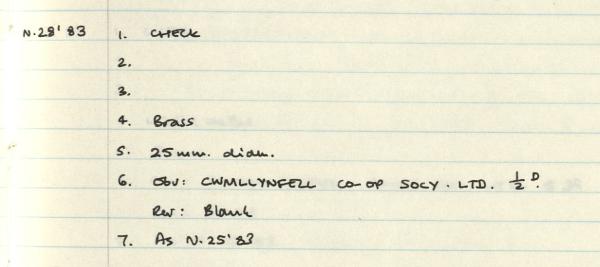 N.28'83 1. CHECK
2.
3.
4. Brass
5. 25mm. diam.
6. Obv: CWMLLYNFELL CO-OP SOCY. LTD. ½ D.
Rev: Blank
7. As N.25'83